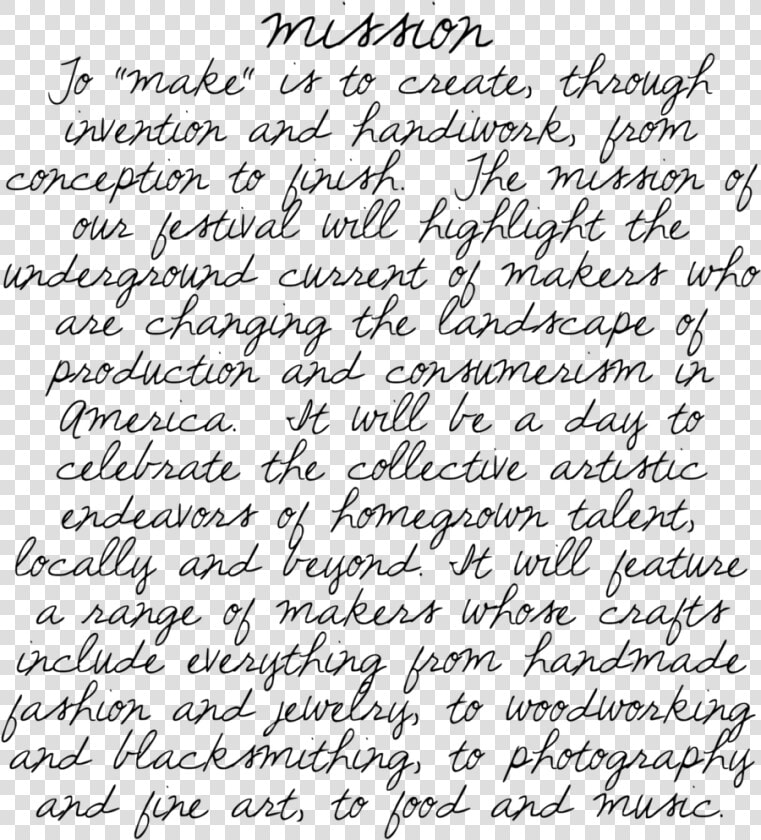 mission
To "make" is to create, through
invention and handiwork, from
conception to finish. The mission of
our festival will highlight the
underground current of makers who
are changing the landscape of
production and consumerism in
America. It will be a day to
celebrate the collective artistic
endeavors of homegrown talent,
locally and beyond. It will feature
a range of makers whose crafts
include everything from handmade
fashion and jewelry, to woodworking
and blacksmithing, to photography
and fine art, to food and music.